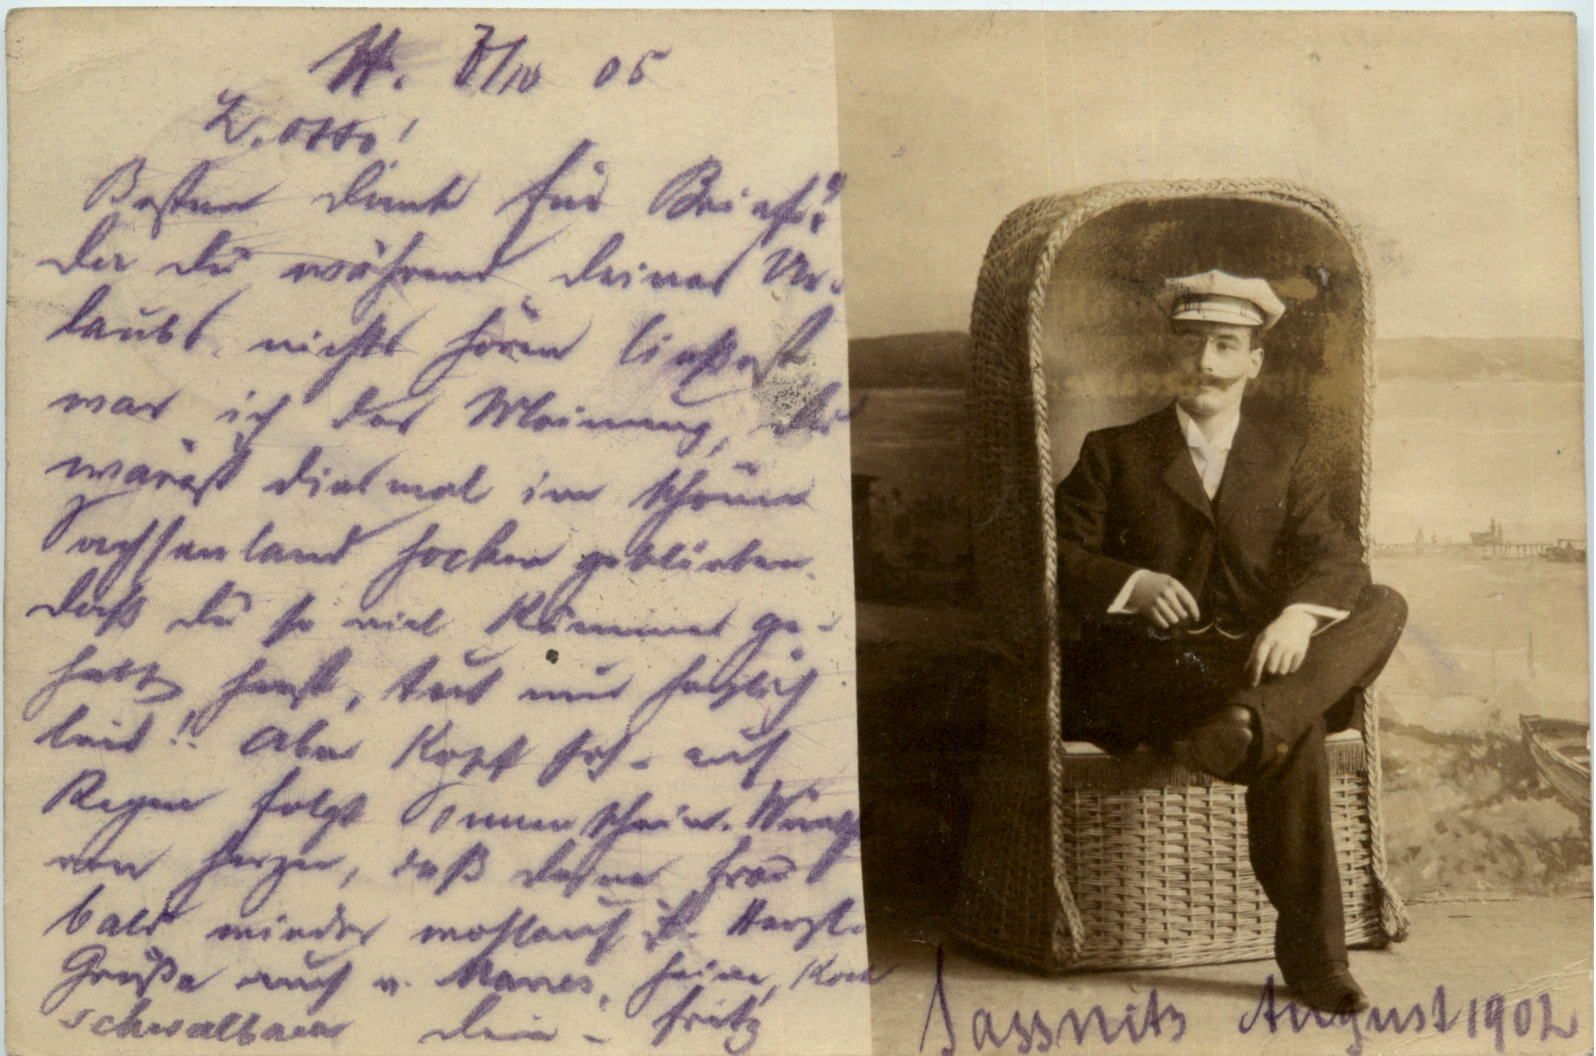 H. 7/10 05
L. Otto!
Besten Dank für Brief!
Da du während deines Ur-
laubs nichts hören ließest
war ich der Meinung, du
wärest diesmal im schönen
Sachsenland hocken geblieben.
Daß du so viel Kummer ge-
habt hast, tut mir herzlich
leid!! Aber Kopf hoch - auf
Regen folgt Sonnenschein. Wünsche
von Herzen, daß deine Frau
bald wieder wohlauf ist. Herzl.
Grüße auch v. Heine, Koch
Schwalbner dein - Fritz
Sassnitz August 1902